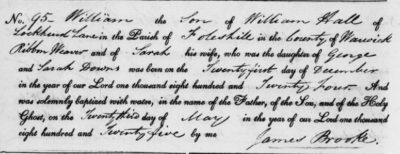 No. 95. William the Son of William Hall of
Lockhurst Lane in the Parish of Foleshill in the County of Warwick
Ribbon Weaver and of Sarah his wife, who was the daughter of George
and Sarah Downs was born on the Twenty first day of December
in the year of our Lord one thousand eight hundred and Twenty Four. And
was solemnly baptized with water, in the name of the Father, of the Son, and of the Holy
Ghost, on the Twenty third day of May in the year of our Lord one thousand
eight hundred and Twenty five by me
James Brooke.